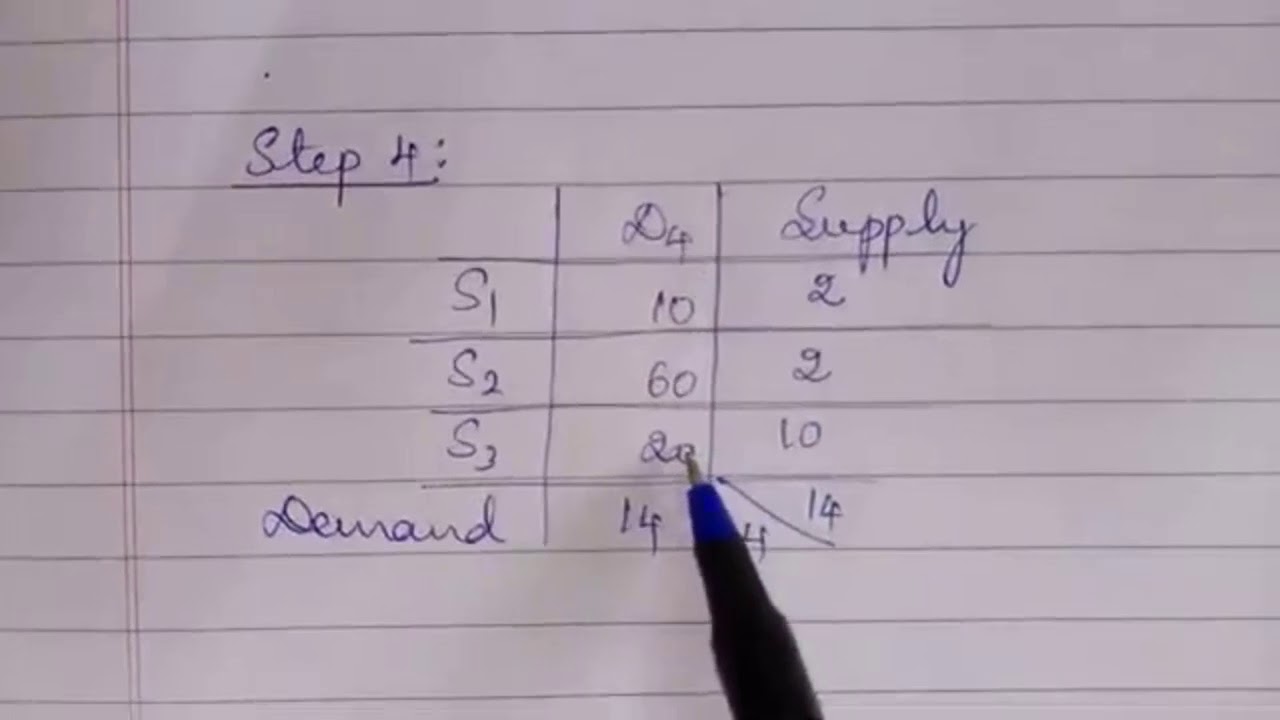 Step 4:
D4 Supply
S1 10 2
S2 60 2
S3 20 10
Demand 14 4 14